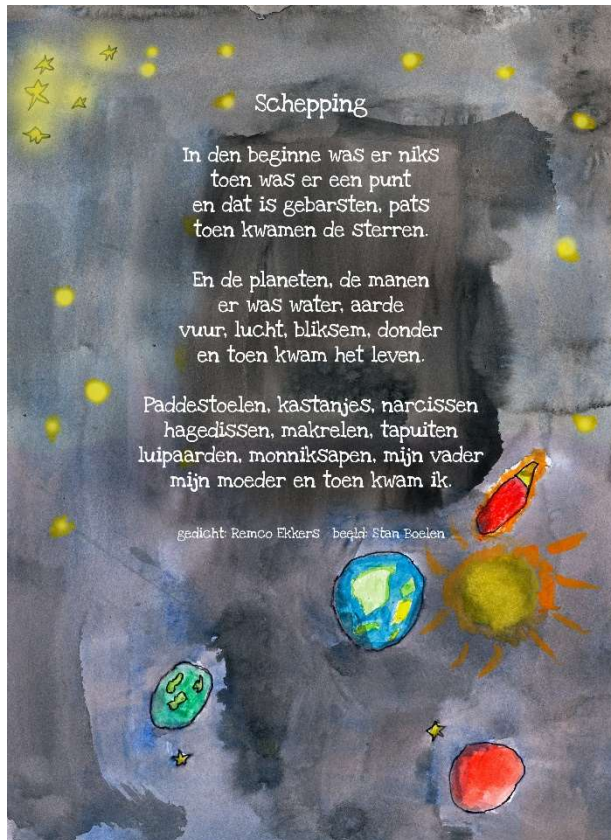 Schepping
In den beginne was er niks
toen was er een punt
en dat is gebarsten, pats
toen kwamen de sterren.
En de planeten, de manen
er was water, aarde
vuur, lucht, bliksem, donder
en toen kwam het leven.
Paddestoelen, kastanjes, narcissen
hagedissen, makrelen, tapuiten
luipaarden, monniksapen, mijn vader
mijn moeder en toen kwam ik.
gedicht: Remco Ekkers beeld: Stan Boelen